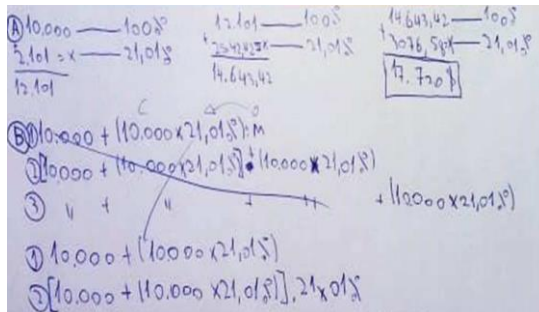 Ⓐ 10.000 — 100%
+ 2.101 = x — 21,01%
12.101
12.101 — 100%
+ 2542,42=x — 21,01%
14.643,42
14.643,42 — 100%
+ 3076,58=x — 21,01%
17.720 $
C
Ⓑ ① 10.000 + (10.000 x 21,01%) = M
② [10.000 + (10.000 x 21,01%)] + (10.000 x 21,01%)
③ " + " + " + (10000 x 21,01%)
① 10.000 + (10.000 x 21,01%)
② [10.000 + (10.000 x 21,01%)] . 21x01%